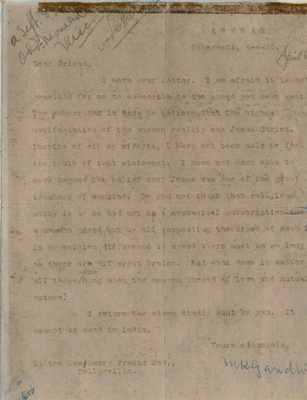 A S H R A M
Sabarmati, 6-4-26.
Dear Friend,
I have your letter. I am afraid it is
possible for me to subscribe to the creed you have sent
The subscriber is to believe that the highest
manifestation of the unseen reality was Jesus Christ.
Inspite of all my efforts, I have not been able to feel
the truth of that statement. I have not been able to
move beyond the belief that Jesus was one of the great
teachers of mankind. Do you not think that religious
unity is to be had not by a mechanical subscription
common creed but by all respecting the creed of each
In my opinion difference in creed there must be so long
as there are different brains. But what does it matter
all these hung upon the common thread of love and mutual
esteem?
I return the stamp kindly sent by you. It
cannot be used in India.
Yours sincerely,
MKGandhi
Milton Newberry Frantz Esq.,
Collgeville.